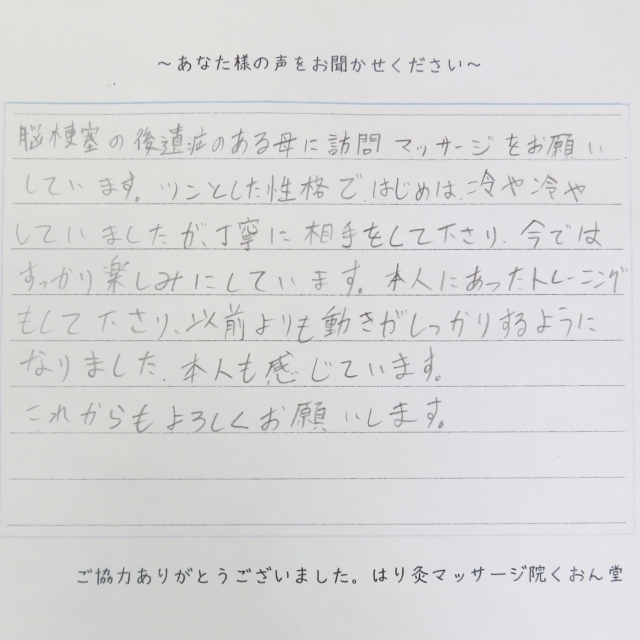 ～あなた様の声をお聞かせください～
脳梗塞の後遺症のある母に訪問マッサージをお願い
しています。ツンとした性格で、はじめは、冷や冷や
していましたが、丁寧に相手をして下さり、今では
すっかり楽しみにしています。本人にあったトレーニング
もして下さり、以前よりも動きがしっかりするように
なりました。本人も感じています。
これからもよろしくお願いします。
ご協力ありがとうございました。はり灸マッサージ院くおん堂